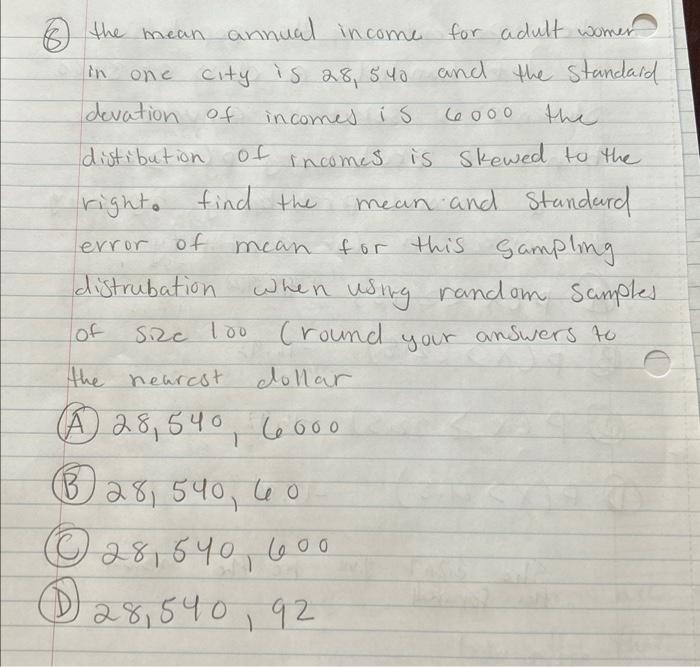 ⑧ the mean annual income for adult women
in one city is 28,540 and the standard
devation of incomes is 6000 the
distibution of incomes is skewed to the
right. find the mean and standard
error of mean for this sampling
distrubation when using random samples
of size 100 (round your answers to
the nearest dollar
Ⓐ 28,540, 6000
Ⓑ 28,540, 60
Ⓒ 28,540, 600
Ⓓ 28,540, 92